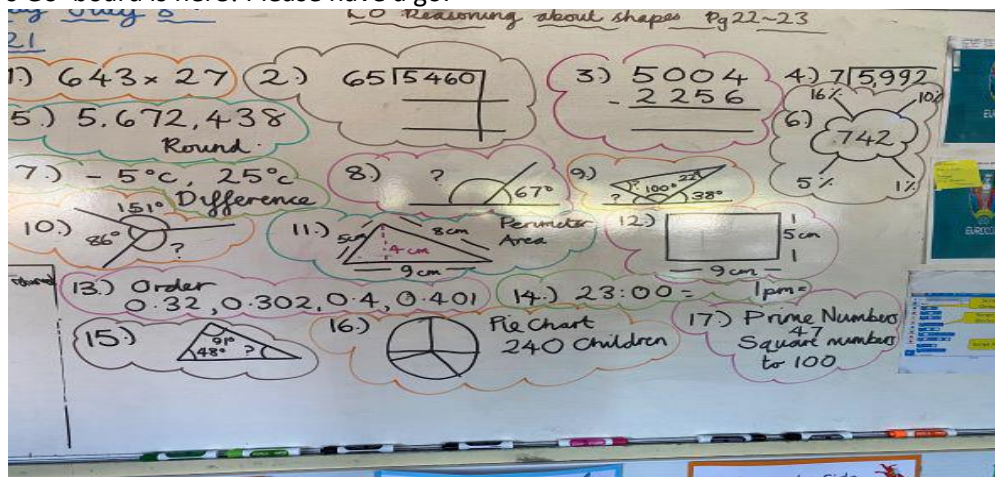 LO Reasoning about shapes Pg 22~23
21
1.) 643 × 27
2.) 65 5460
3.) 5004
- 2256
4.) 7 5,992
5.) 5,672,438
Round.
6.) 742
16% 10%
5% 1%
7.) -5°c, 25°c
Difference
8.) ? 67°
9.) ? 100° 22° ? 38°
10.) 151° 86° ?
11.) 5cm 8cm 4cm 9cm
Perimeter
Area
12.) 5cm 9cm
13.) Order
0.32, 0.302, 0.4, 0.401
14.) 23:00 = 1pm=
15.) 91° 48° ?
16.) Pie Chart
240 Children
17.) Prime Numbers
47
Square numbers
to 100